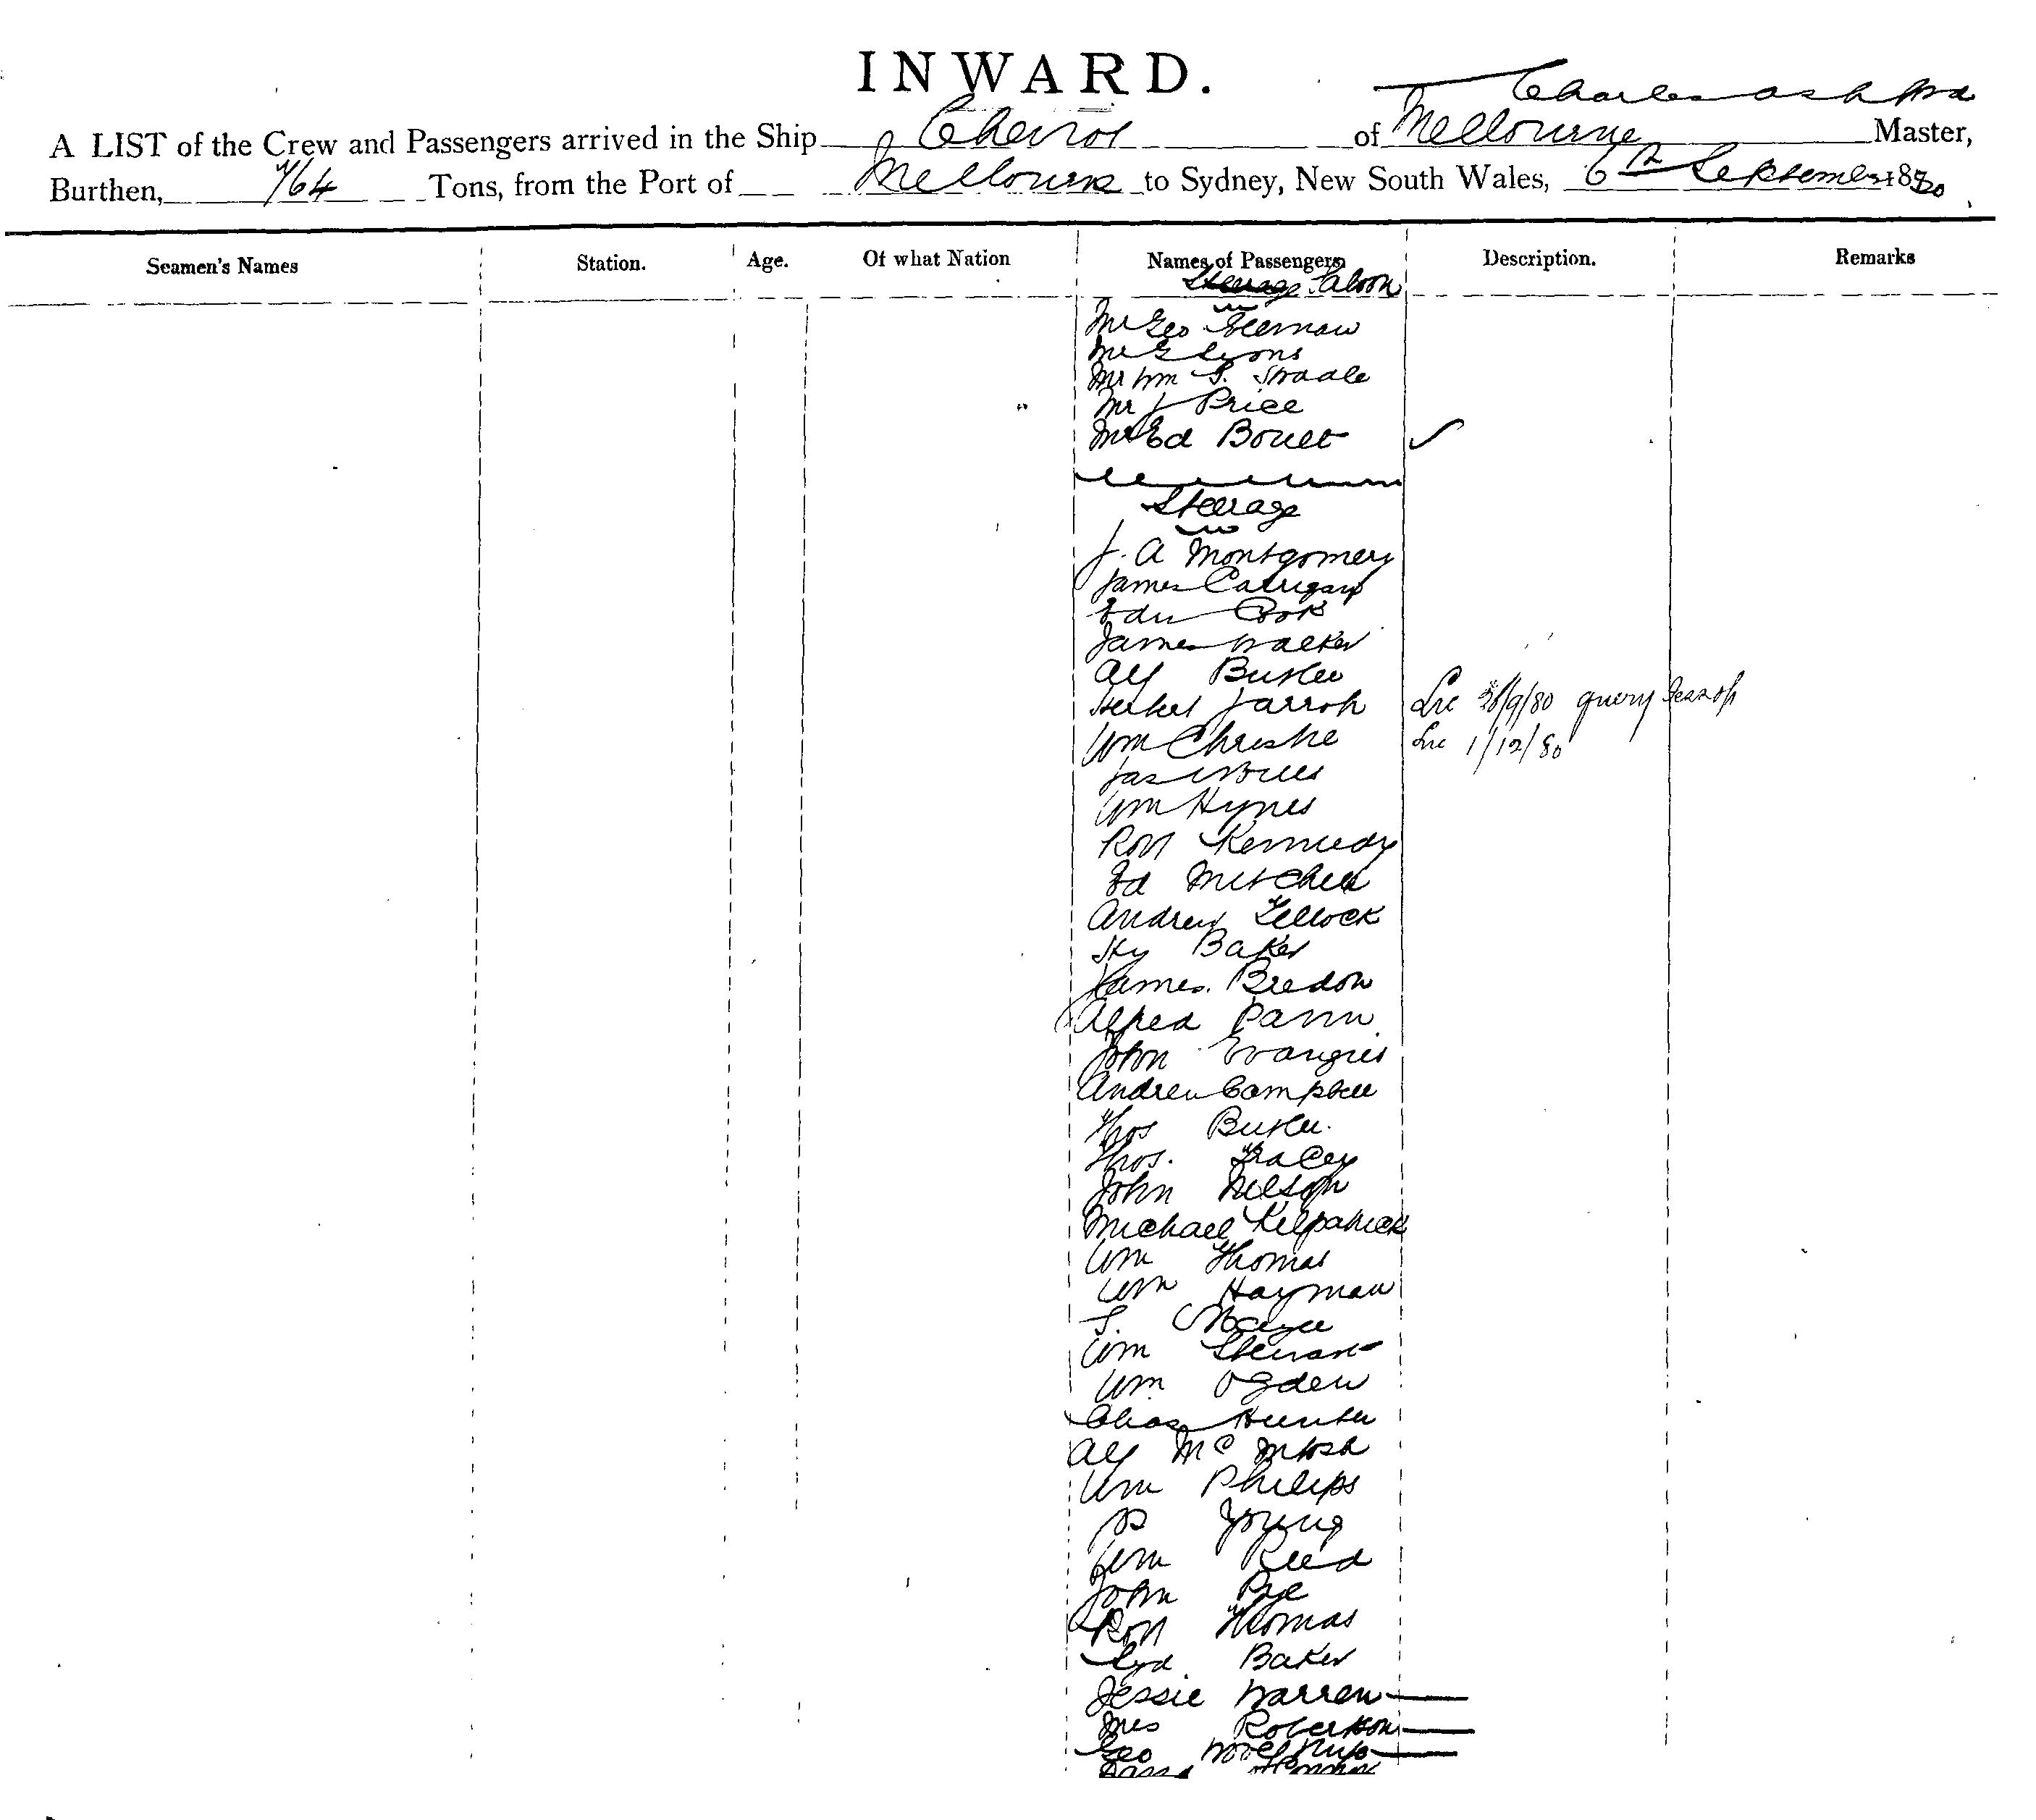 INWARD.
Charles Ashford
A LIST of the Crew and Passengers arrived in the Ship Cheviot of Melbourne Master,
Burthen, 764 Tons, from the Port of Melbourne to Sydney, New South Wales, 6th September 1880
Seamen's Names Station. Age. Of what Nation Names of Passengers Description. Remarks
Steerage Saloon
Mr Geo
Mr Lyons
Mr Wm
Mr J Price
Mr Ed
Steerage
J. A Montgomery
James
Edw Cook
James Walker
Alf Butler
Jarroh Lic /9/80 query Jessop
Wm Christie Lic 1/12/80
Jas
Wm Hynes
Robt Kennedy
Ed Mitchell
Andrew
Hy Baker
James
Alfred
John
Andrew Campbell
Thos Butler
Thos. Tracey
John Nelson
Michael Kilpatrick
Wm Thomas
Wm Hayman
Wm Stewart
Wm Ogden
Chas Hunter
Alf McIntosh
Wm Philips
Young
Wm Reed
John Pye
Robt Thomas
Syd Baker
Jessie Warren
Mrs Robertson
Geo